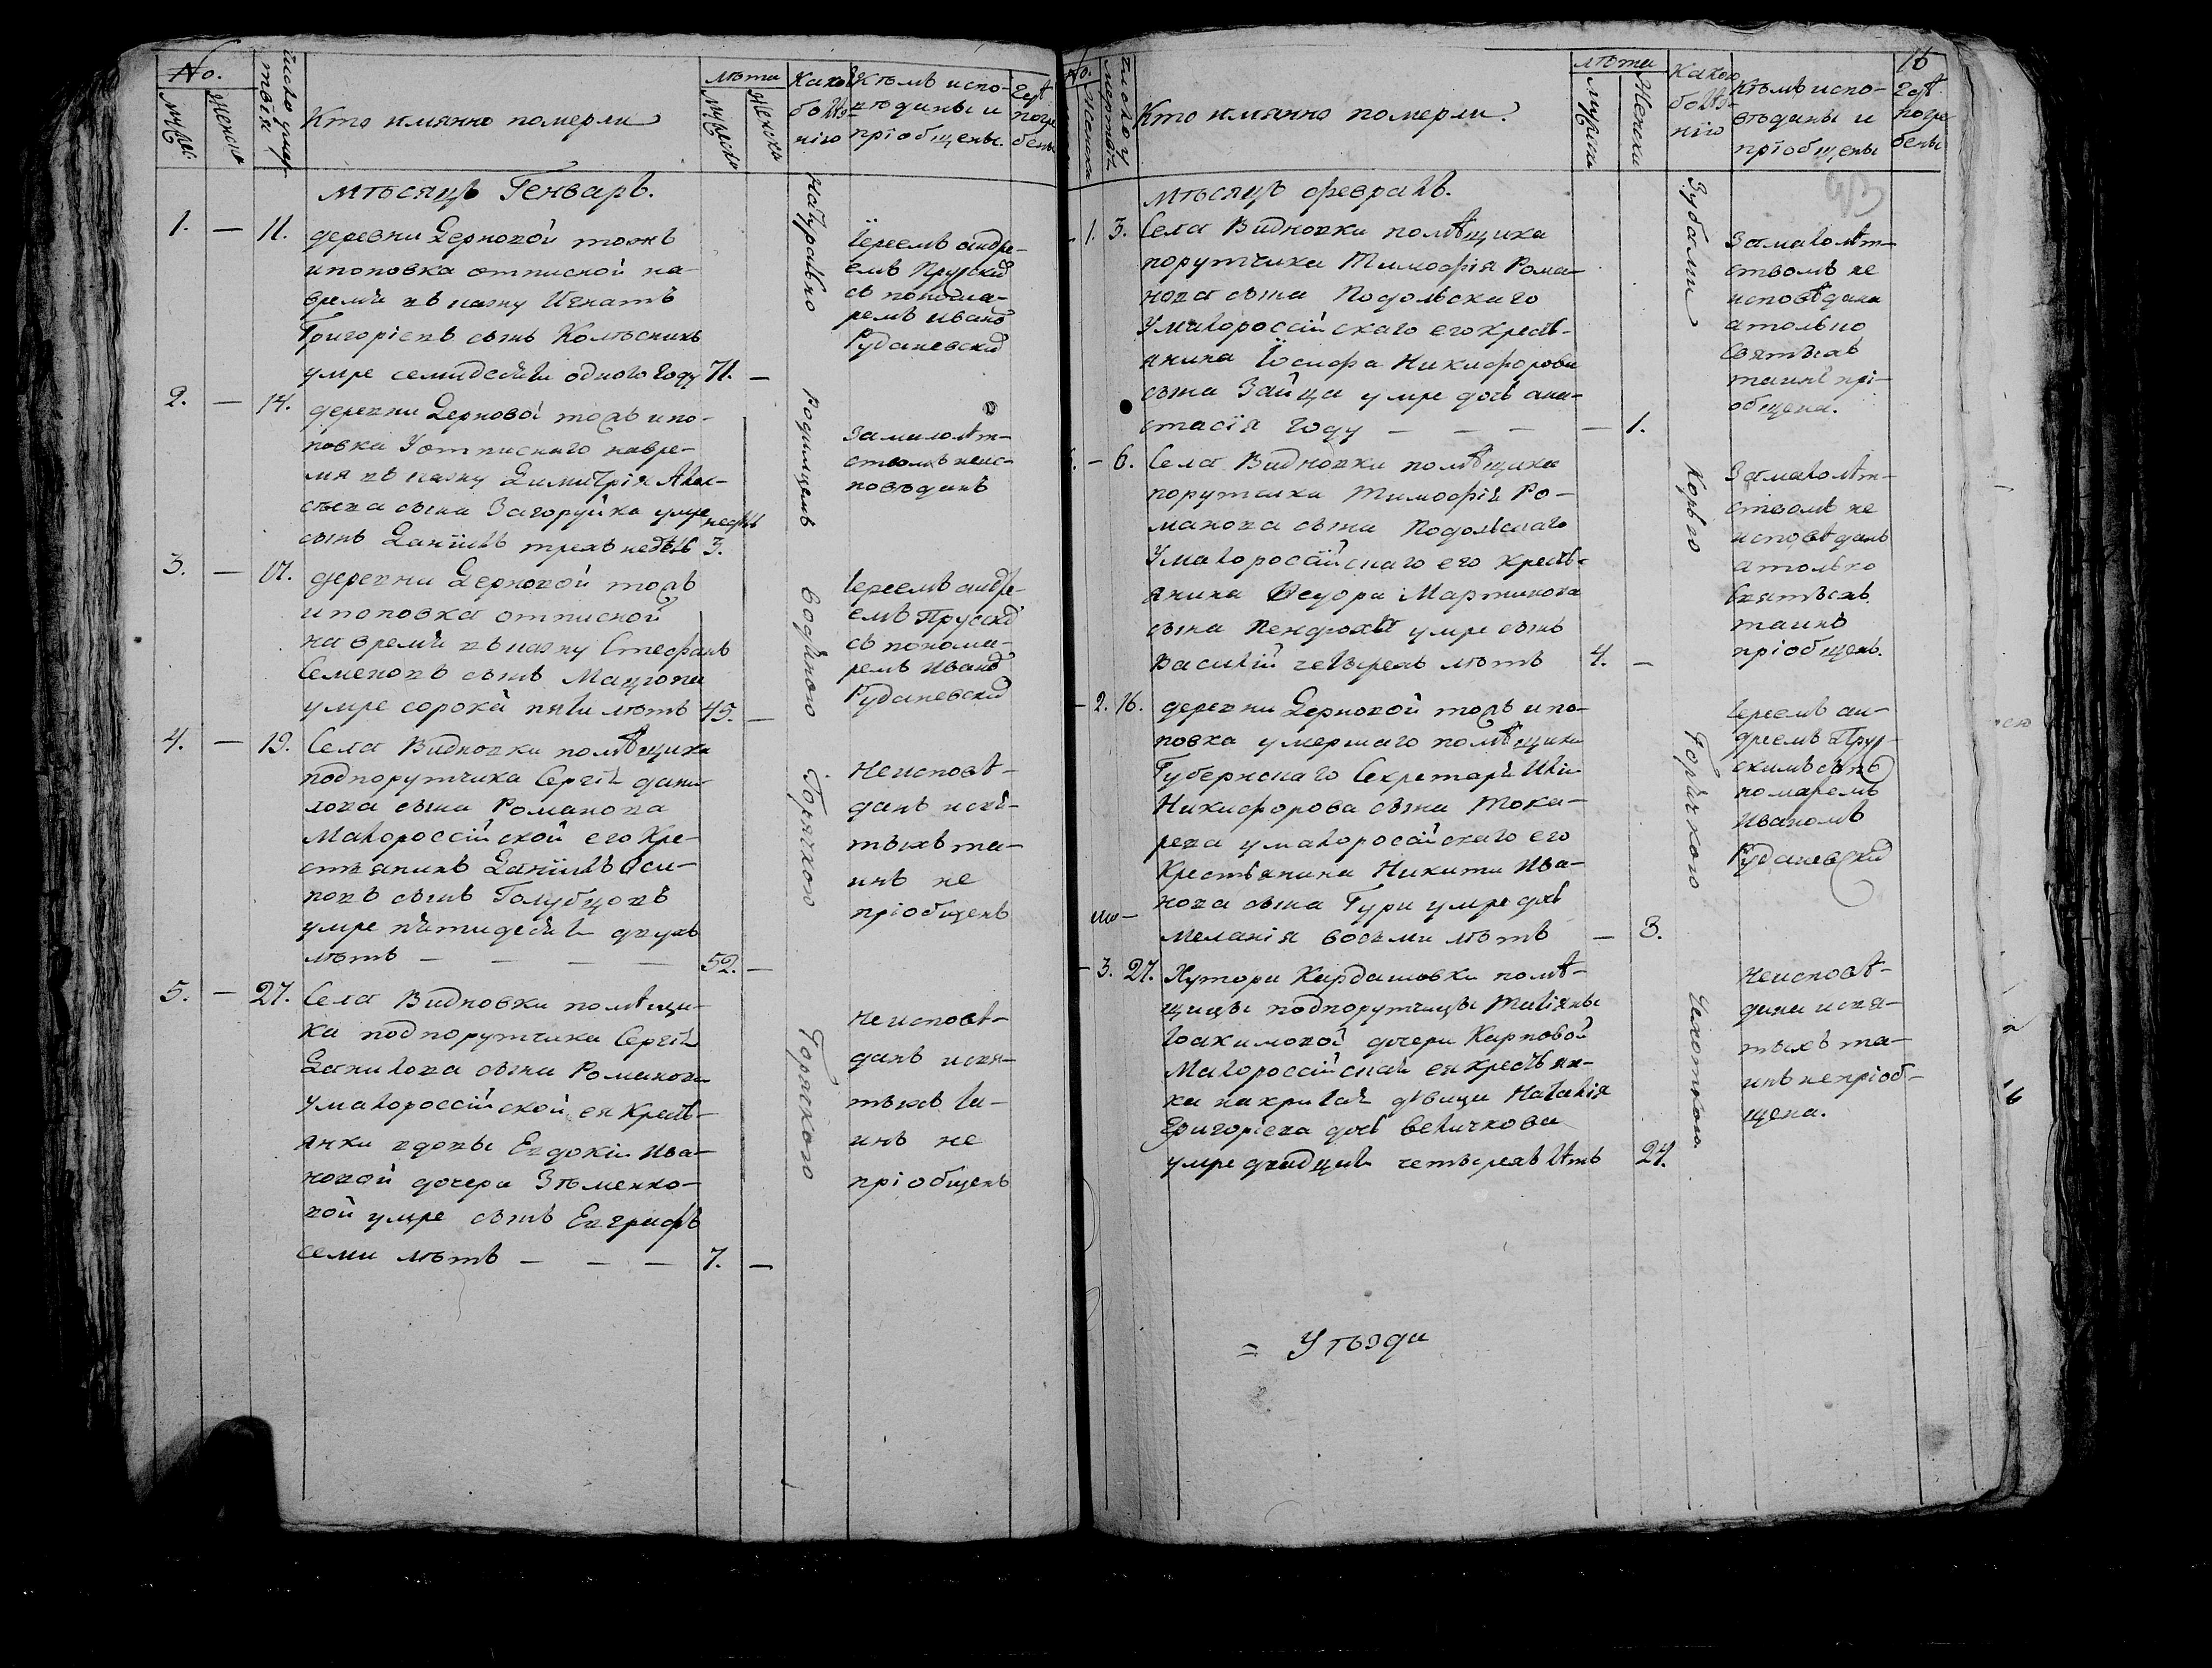 No.
Мужес.
Женска
число умертвія
Кто имянно померли
лѣта
Мужеска
Женска
Какою болѣзнію
Кѣмъ исповѣданы и пріобщены.
Гдѣ погребены
мѣсяцъ Генварь.
1. — 11. деревни Дерновой тожъ
и поповка отписной на-
время въ казну Игнатъ
Григоріевъ сынъ Колѣсникъ
умре семидесяти одного году 71. —
Натурално
Іереемъ Андре-
емъ Прускимъ
съ понома-
ремъ Иваномъ
Руданевскимъ
2. — 14. деревни Дерновой тожъ и по-
повка у отписнаго навре-
мя въ казну Димитрія Алек-
сѣева сына Загоруйка умре
сынъ Даніилъ трехъ недѣль 3. недѣль
Родимцемъ
За малолѣт-
ствомъ неис-
повѣданъ
3. — 17. деревни Дерновой тожъ
и поповка отписной
на время въ казну Стефанъ
Семеновъ сынъ
умре сорока пяти лѣтъ 45. —
Водяною
Іереемъ Андре-
емъ Прускимъ
съ понома-
ремъ Иваномъ
Руданевскимъ
4. — 19. Села Видновки помѣщика
подпорутчика Сергія Дани-
лова сына Романова
Малороссійской его кре-
стьянинъ Даніилъ Оси-
повъ сынъ Голубцовъ
умре пятидесяти двухъ
лѣтъ — — — — 52. —
Горячкою
Неисповѣ-
данъ исвя-
тыхъ та-
инъ не
пріобщенъ
5. — 27. Села Видновки помѣщи-
ка подпорутчика Сергія
Данилова сына Романова
у малороссійской ея кресть-
янки вдовы Евдокіи Ива-
новой дочери Зѣменко-
вой умре сынъ Евграфъ
семи лѣтъ — — — 7. —
Горячкою
Неисповѣ-
данъ исвя-
тыхъ та-
инъ не
пріобщенъ
16
No.
Женска
число умертвія
Кто имянно померли.
лѣта
Мужеска
Женска
Какою болѣзнію
Кѣмъ исповѣданы и пріобщены
Гдѣ погребены
мѣсяцъ февраль.
- 1. 3. Села Видновки помѣщика
порутчика Тимофія Рома-
нова сына Подольскаго
У малороссійскаго его кресть-
янина Іосифа Никифорова
сына Зайца умре дочь Ана-
стасія году — — — — 1.
Зубами
За малолѣт-
ствомъ не
исповѣдана
атолько
святыхъ
таинъ прі-
общена.
- 6. Села Видновки помѣщика
порутчика Тимофія Ро-
манова сына Подольскаго
У малороссійскаго его кресть-
янина Ѳедора Мартинова
сына умре сынъ
Василій четырехъ лѣтъ 4. —
Корью
За малолѣт-
ствомъ не
исповѣданъ
атолько
святыхъ
таинъ
пріобщенъ.
- 2. 16. деревни Дерновой тожъ и по-
повка умершаго помѣщика
Губернскаго Секретаря Иліи
Никифорова сына Тока-
рева у малороссійскаго его
Крестьянина Никити Ива-
нова сына Гури умре дочь
Меланія восьми лѣтъ — 8.
Горячкою
Іереемъ Ан-
дреемъ Прус-
скимъ съ по-
номаремъ
Иваномъ
Руданевскимъ
- 3. 27. Хутора Кардашовки помѣ-
щицы подпорутчицы Татіяны
Іоакимовой дочери Карповой
Малороссійская ея крестьян-
ка накритая дѣвица Наталія
Григоріева дочь Величкова
умре двадцати четырехъ лѣтъ 24.
Чехоткою
Неисповѣ-
дана исвя-
тыхъ та-
инъ непріоб-
щена.
= Уѣзда